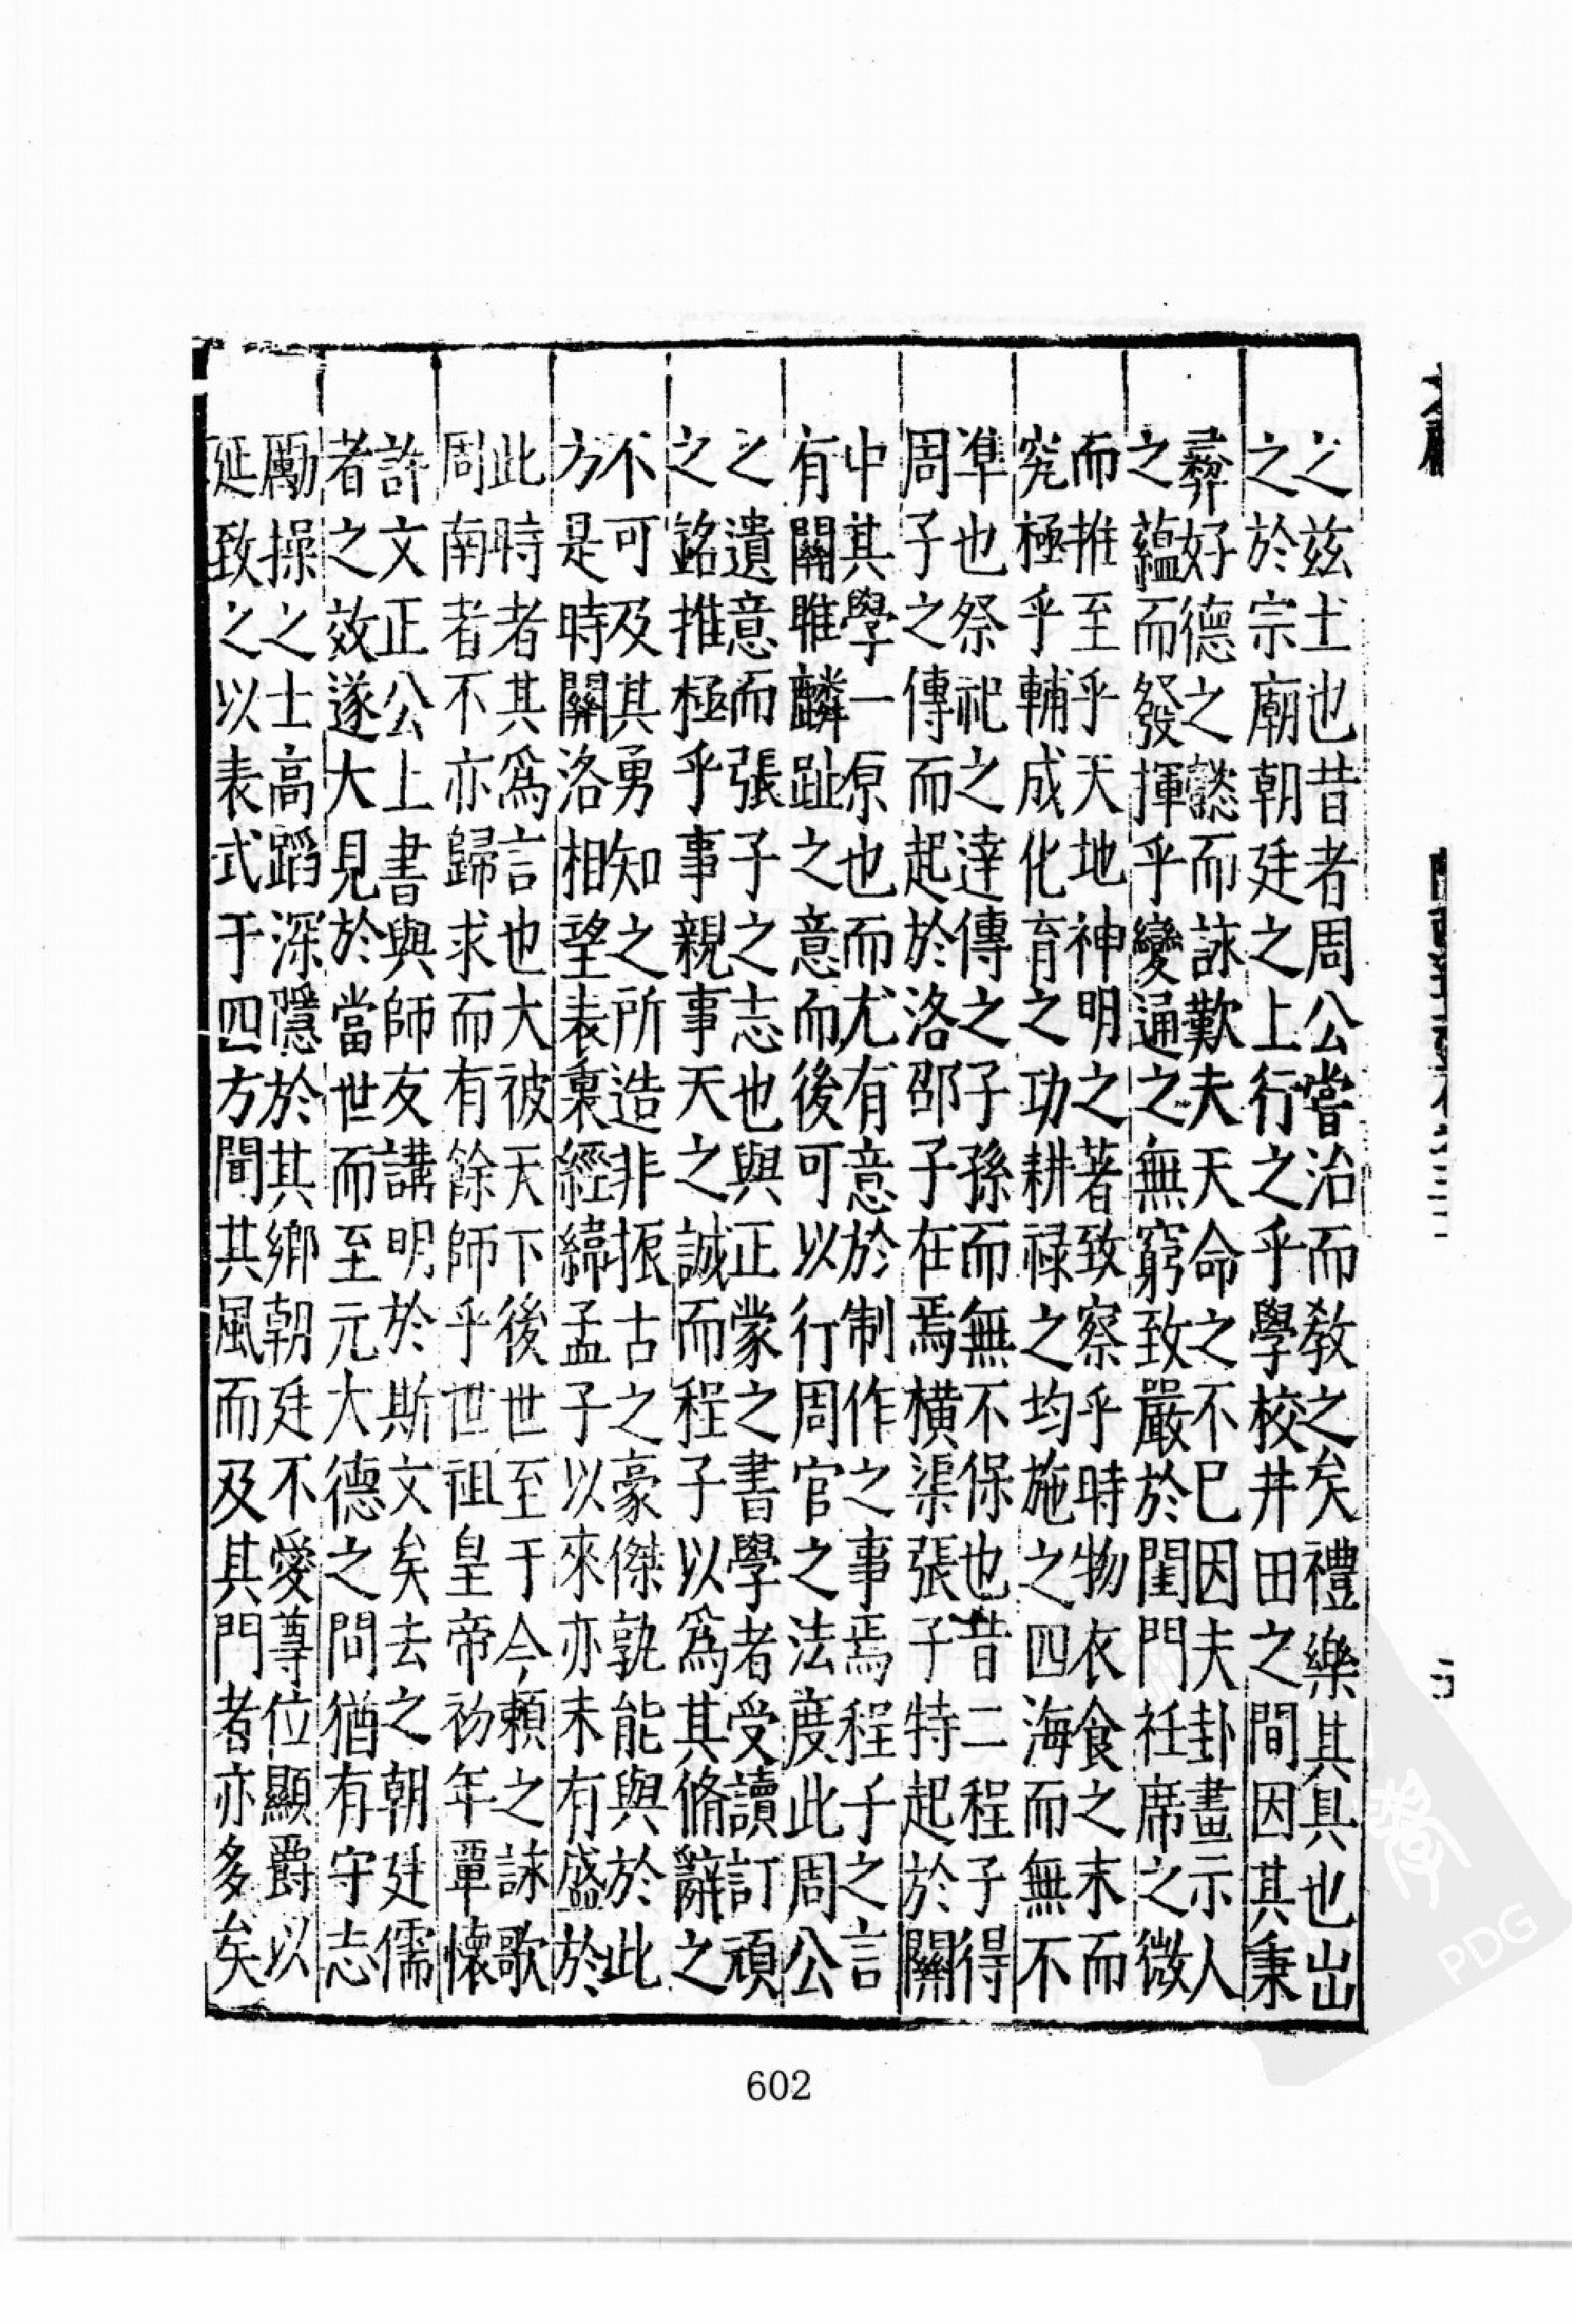 之茲土也昔者周公嘗治而教之矣禮樂其具也出
之於宗廟朝廷之上行之乎學校井田之間因其秉
彞好德之懿而詠歎夫天命之不已因夫卦畫示人
之蘊而發揮乎變通之無窮致嚴於閨門衽席之微
而推至乎天地神明之著致察乎時物衣食之末而
究極乎輔成化育之功耕祿之均施之四海而無不
準也祭祀之達傳之子孫而無不保也昔二程子得
周子之傳而起於洛邵子在焉橫渠張子特起於關
中其學一原也而尤有意於制作之事焉程子之言
有關雎麟趾之意而後可以行周官之法度此周公
之遺意而張子之志也與正蒙之書學者受讀訂頑
之銘推極乎事親事天之誠而程子以爲其脩辭之
不可及其勇知之所造非振古之豪傑孰能與於此
方是時關洛相望表裏經緯孟子以來亦未有盛於
此時者其爲言也大被天下後世至于今賴之詠歌
周南者不亦歸求而有餘師乎世祖皇帝初年覃懷
許文正公上書與師友講明於斯文矣去之朝廷儒
者之效遂大見於當世而至元大德之間猶有守志
勵操之士高蹈深隱於其鄉朝廷不愛尊位顯爵以
延致之以表式于四方聞其風而及其門者亦多矣
602
PDG